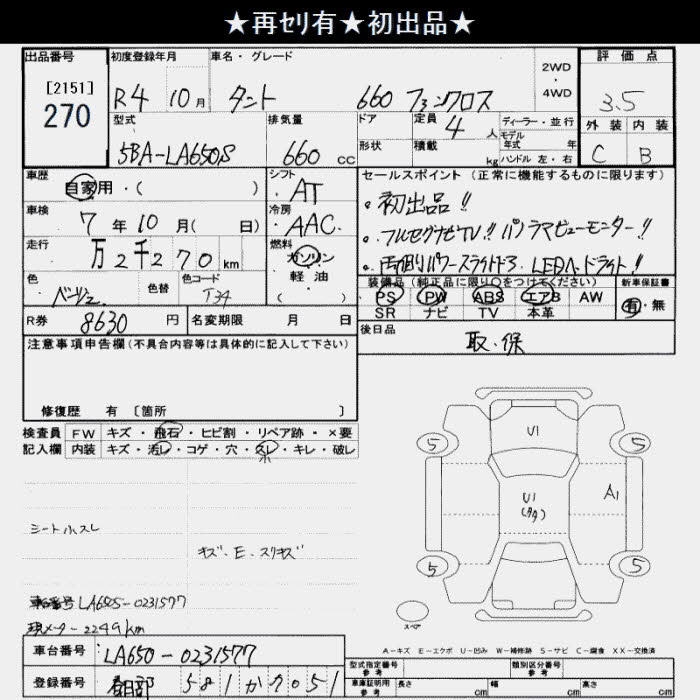 ★再セリ有★初出品★
出品番号 初度登録年月 車名・グレード 2WD・4WD 評価点
[2151]
270 R4 10月 タント 660 ファンクロス 3.5
型式 排気量 ドア 定員 4人 ディーラー・並行 外装 内装
5BA-LA650S 660cc 形状 積載 kg モデル年式 年 ハンドル 左・右 C B
車歴 自家用・( ) シフト AT セールスポイント (正常に機能するものに限ります)
車検 7年10月( 日) 冷房 AAC ・初出品!!
・フルセグナビTV!! パノラマビューモニター!!
走行 万2千270km 燃料 ガソリン 軽油 ( )
・両側パワースライドドア LEDヘッドライト!!
色 ベージュ 色替 色コード T34
装備品 (純正品に限り○をつけてください) 新車保証書
PS PW ABS エアB AW 有・無
SR ナビ TV 本革
R券 8630円 名変期限 月 日
後日品 取・保
注意事項申告欄 (不具合内容等は具体的に記入して下さい)
修復歴 有 〔箇所 〕
検査員 FW キズ・飛石・ヒビ割・リペア跡・×要
記入欄 内装 キズ・汚レ・コゲ・穴・スレ・キレ・破レ
小
シート小スレ
キズ・E・スリキズ
車台番号 LA650S-0231577
現メーター 2249km
5 U1 5
U1 A1
5 5
スペア
A-キズ E-エクボ U-凹み W-補修跡 S-サビ C-腐食 XX-交換済
車台番号 LA650-0231577
登録番号 581か7051
型式指定番号 参考 類別区分番号 参考
車庫証明用 参考 長さ cm 幅 cm 高さ cm